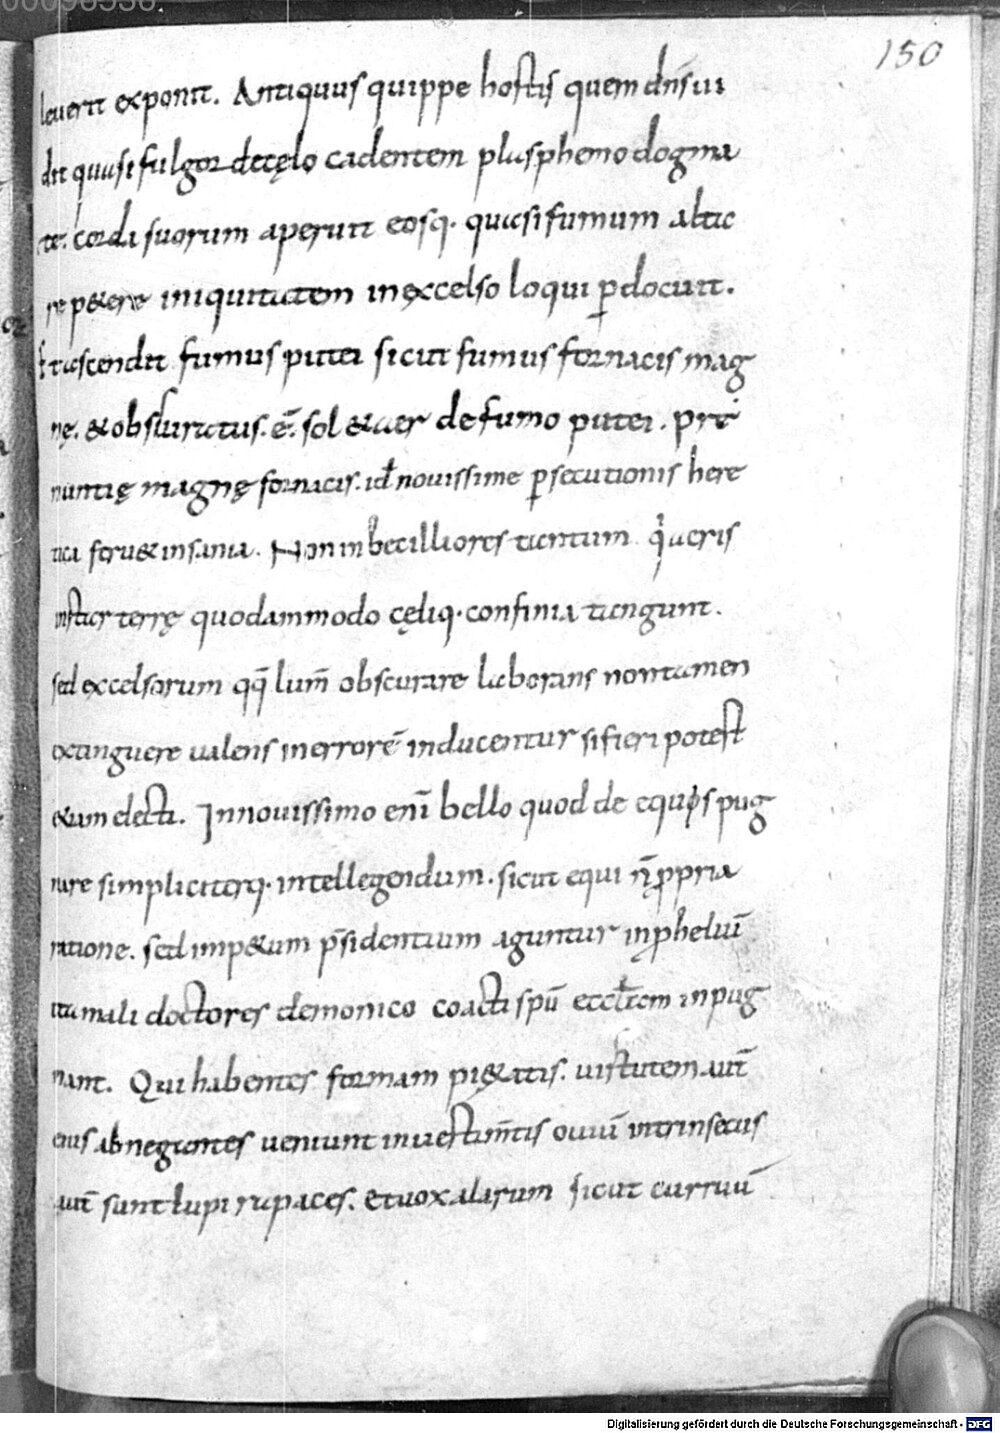 150
leuerit exponit. Antiquus quippe hostis quem dn̄s ui
dit quasi fulgor decęlo cadentem plasphemo dogma
te. corda suorum aperuit eosq· quasi fumum altio
re pețere iniquitatem inexcelso loqui ꝑdocuit.
Et ascendit fumus putei sicut fumus fornacis mag
nę. & obscuratus. ē. sol & aer de fumo putei. prę
nuntię magnę fornacis. id nouissime ꝑsecutionis here
tica feru& insania. Non inbecilliores tantum q̇ ueris
instar terrę quodammodo cęliq· confinia tangunt.
sed excelsorum qq̄ lum̄ obscurare laborans non tamen
extinguere ualens inerrorē inducentur si fieri potest
&iam electi. Innouissimo enī bello quod de equis pug
nare simpliciterq· intellegendum. sicut equi n̄ ꝓpria
ratione. sed imp&um p̄sidentium aguntur inꝓheliū
ita mali doctores demonico coacti spū eccłem inpug
nant. Qui habentes formam pi&atis. uirtutem aut̄
eius abnegantes ueniunt inuestim̄tis ouiū intrinsecus
aut̄ sunt lupi rapaces. et uox alarum sicut curruū
Digitalisierung gefördert durch die Deutsche Forschungsgemeinschaft - DFG